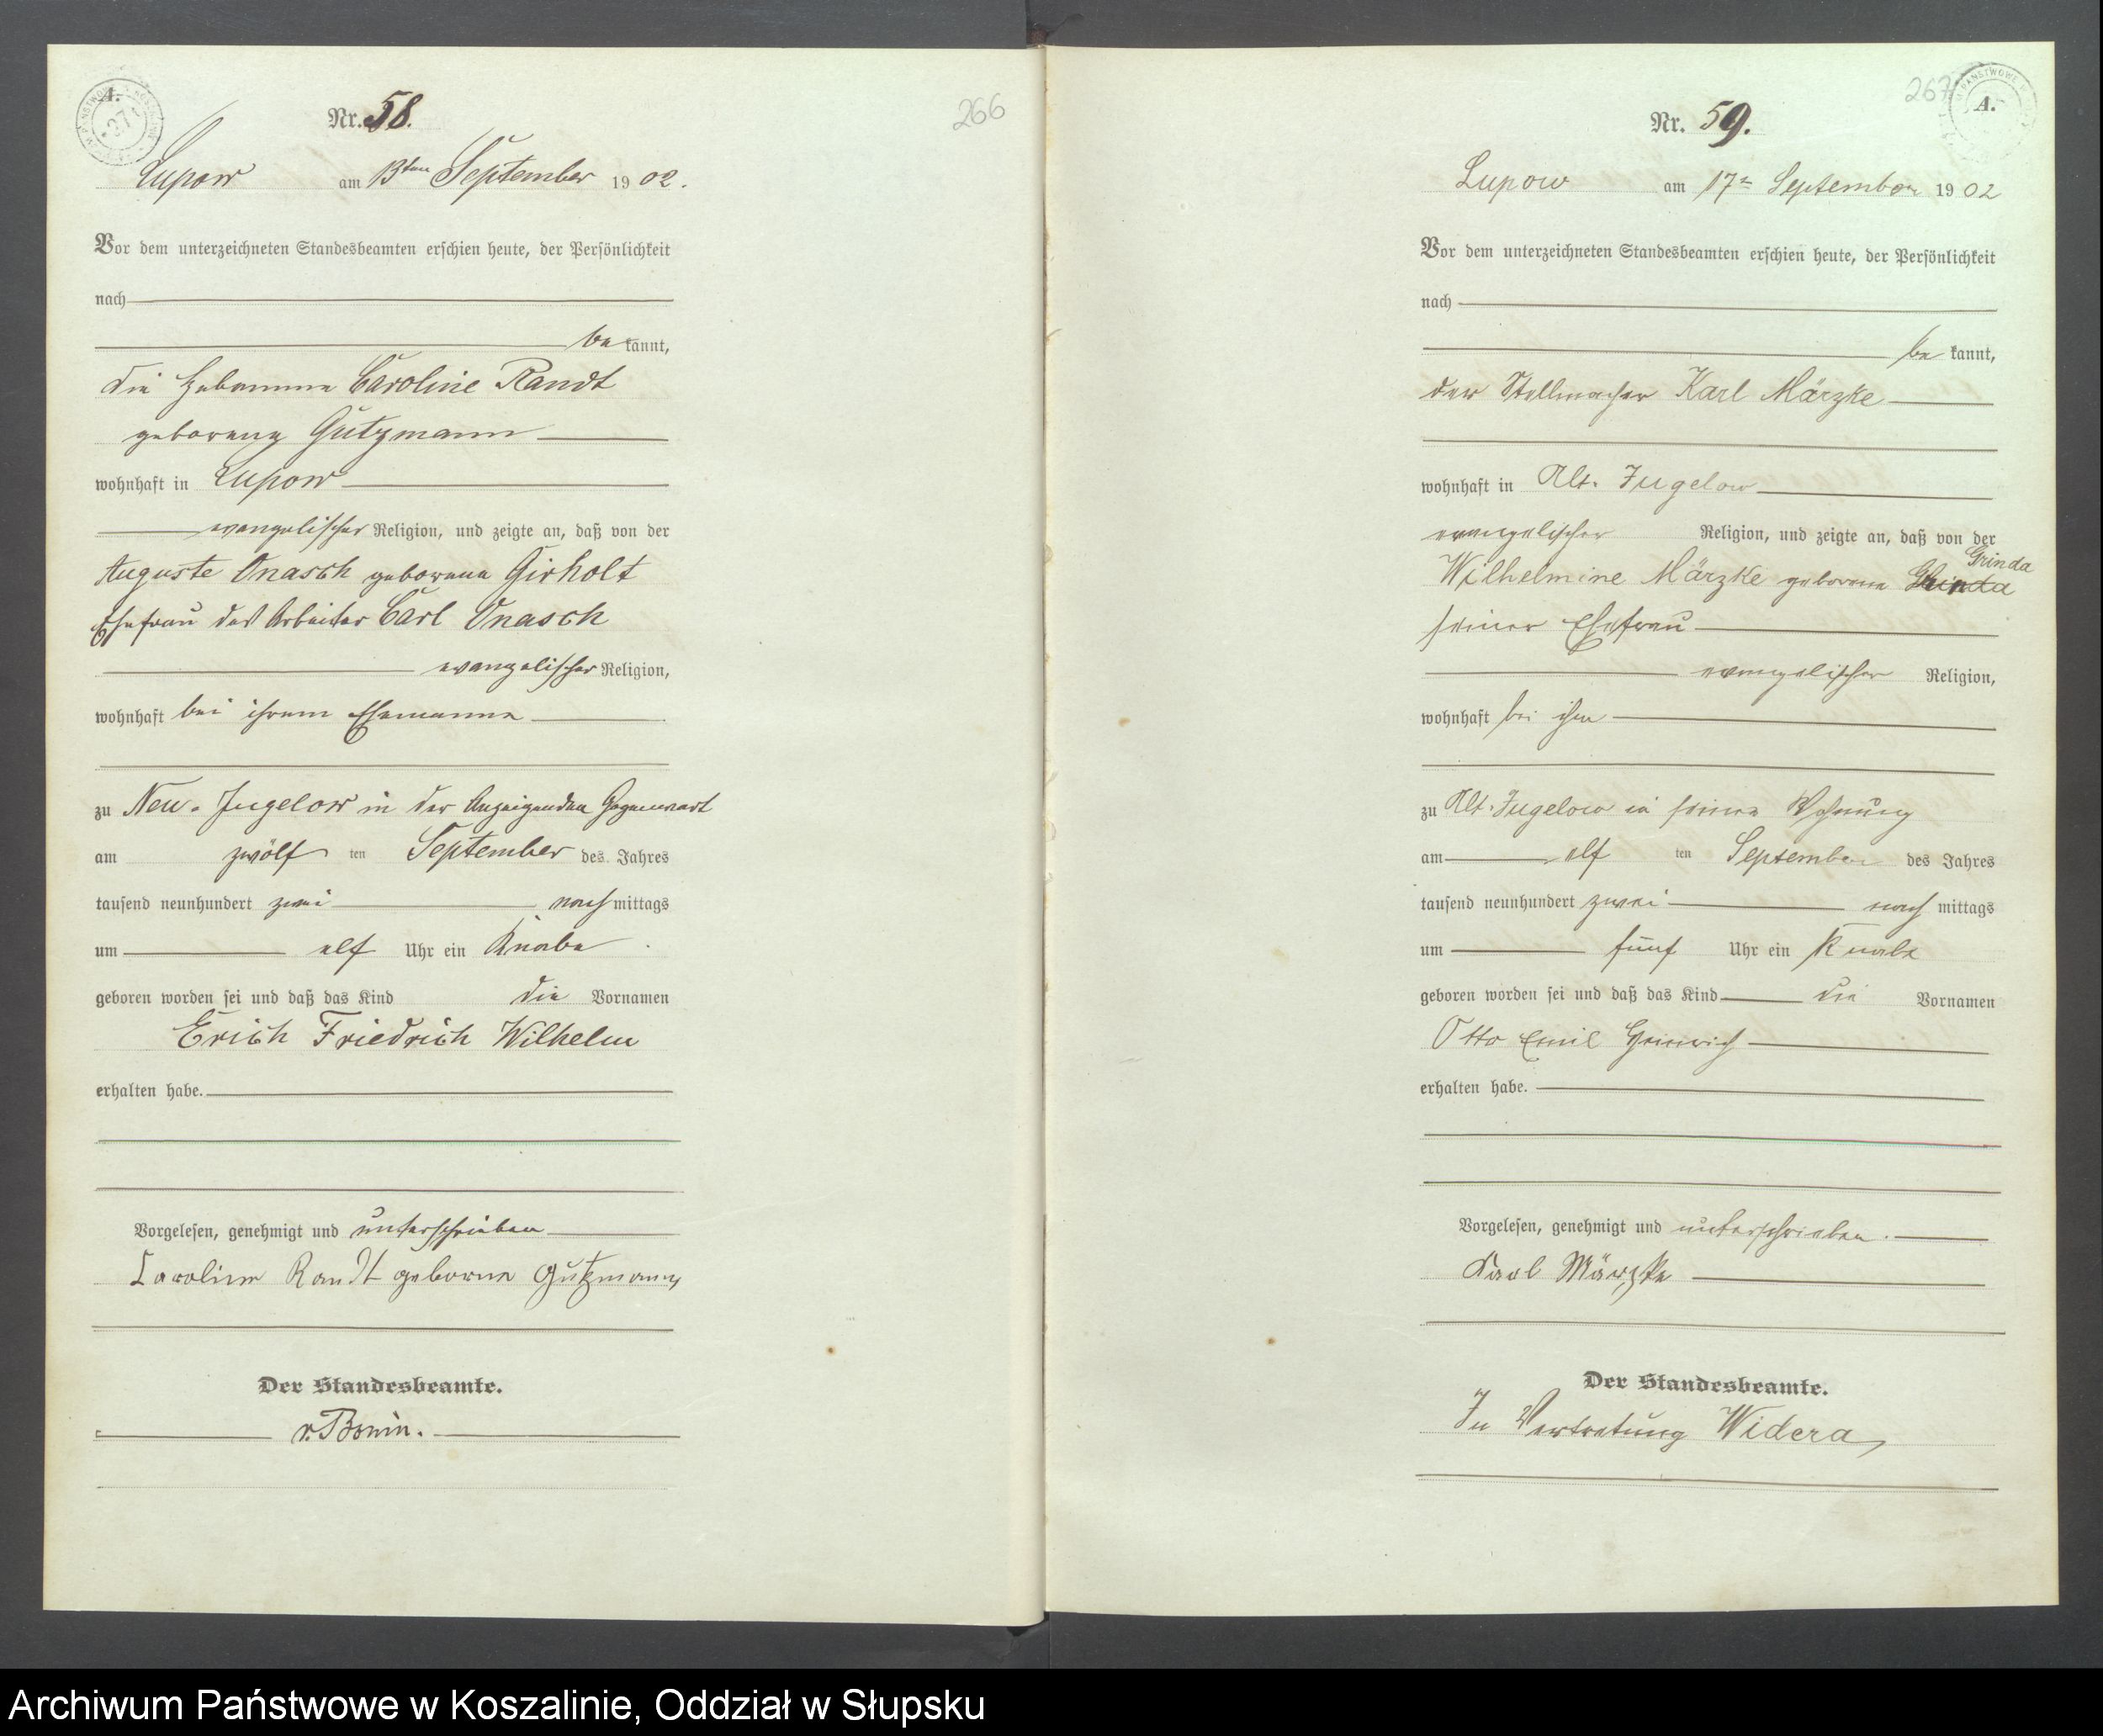 A.
Nr. 58.
266
Lupow am 13ten September 1902.
Vor dem unterzeichneten Standesbeamten erschien heute, der Persönlichkeit
nach
be kannt,
die Hebamme Caroline Randt
geborene Gützmann
wohnhaft in Lupow
evangelischer Religion, und zeigte an, daß von der
Auguste Onasch geborene Girholt
Ehefrau des Arbeiter Carl Onasch
evangelischer Religion,
wohnhaft bei ihrem Ehemanne
zu Neu-Jugelow in der Anzeigenden Gegenwart
am zwölf ten September des Jahres
tausend neunhundert zwei nachmittags
um elf Uhr ein Knabe
geboren worden sei und daß das Kind die Vornamen
Erich Friedrich Wilhelm
erhalten habe.
Vorgelesen, genehmigt und unterschrieben
Caroline Randt geborne Gützmann
Der Standesbeamte.
v. Bonin.
267
A.
Nr. 59.
Lupow am 17t September 1902
Vor dem unterzeichneten Standesbeamten erschien heute, der Persönlichkeit
nach
be kannt,
der Stellmacher Karl Märzke
wohnhaft in Alt-Jugelow
evangelischer Religion, und zeigte an, daß von der
Grinda
Wilhelmine Märzke geborene
seiner Ehefrau
evangelischer Religion,
wohnhaft bei ihm
zu Alt-Jugelow in seiner Wohnung
am elf ten September des Jahres
tausend neunhundert zwei nach mittags
um fünf Uhr ein Knabe
geboren worden sei und daß das Kind die Vornamen
Otto Emil Heinrich
erhalten habe.
Vorgelesen, genehmigt und unterschrieben.
Karl Märzke
Der Standesbeamte.
In Vertretung Widera
Archiwum Państwowe w Koszalinie, Oddział w Słupsku